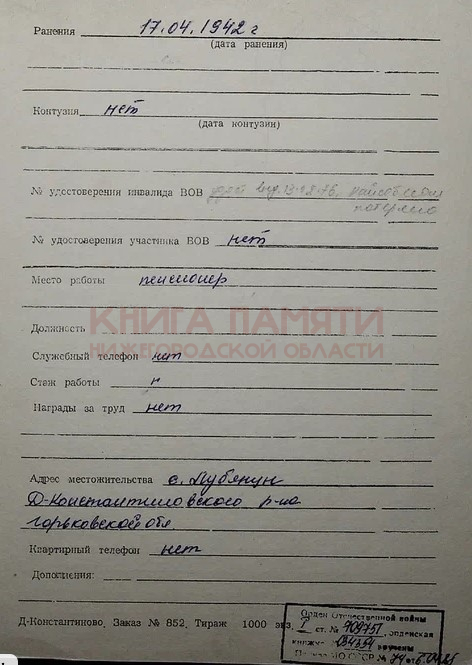 Ранения 17.04.1942 г
(дата ранения)
Контузия нет
(дата контузии)
№ удостоверения инвалида ВОВ
потеряно
№ удостоверения участника ВОВ нет
Место работы пенсионер
КНИГА ПАМЯТИ
Должность
НИЖЕГОРОДСКОЙ ОБЛАСТИ
Служебный телефон нет
Стаж работы н
Награды за труд нет
Адрес местожительства с.
Д-Константиновского р-на
Горьковской обл
Квартирный телефон нет
Дополнения:
Д-Константиново, Заказ № 852, Тираж 1000 экз.
Орден Отечественной войны
I ст. № 709751, орденская
книжка вручены
Приказ МО СССР №